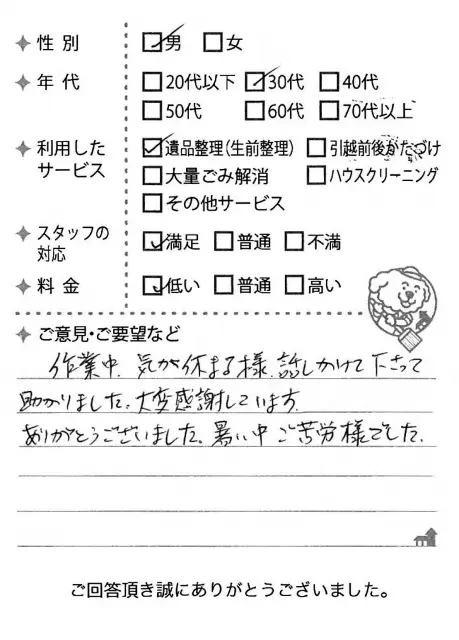 性別 ☑男 □女
年代 □20代以下 ☑30代 □40代
□50代 □60代 □70代以上
利用したサービス ☑遺品整理(生前整理) □引越前後かたづけ
□大量ごみ解消 □ハウスクリーニング
□その他サービス
スタッフの対応 ☑満足 □普通 □不満
料金 ☑低い □普通 □高い
ご意見・ご要望など
作業中、気が休まる様、話しかけて下さって
助かりました。大変感謝しています。
ありがとうございました。暑い中ご苦労様でした。
ご回答頂き誠にありがとうございました。